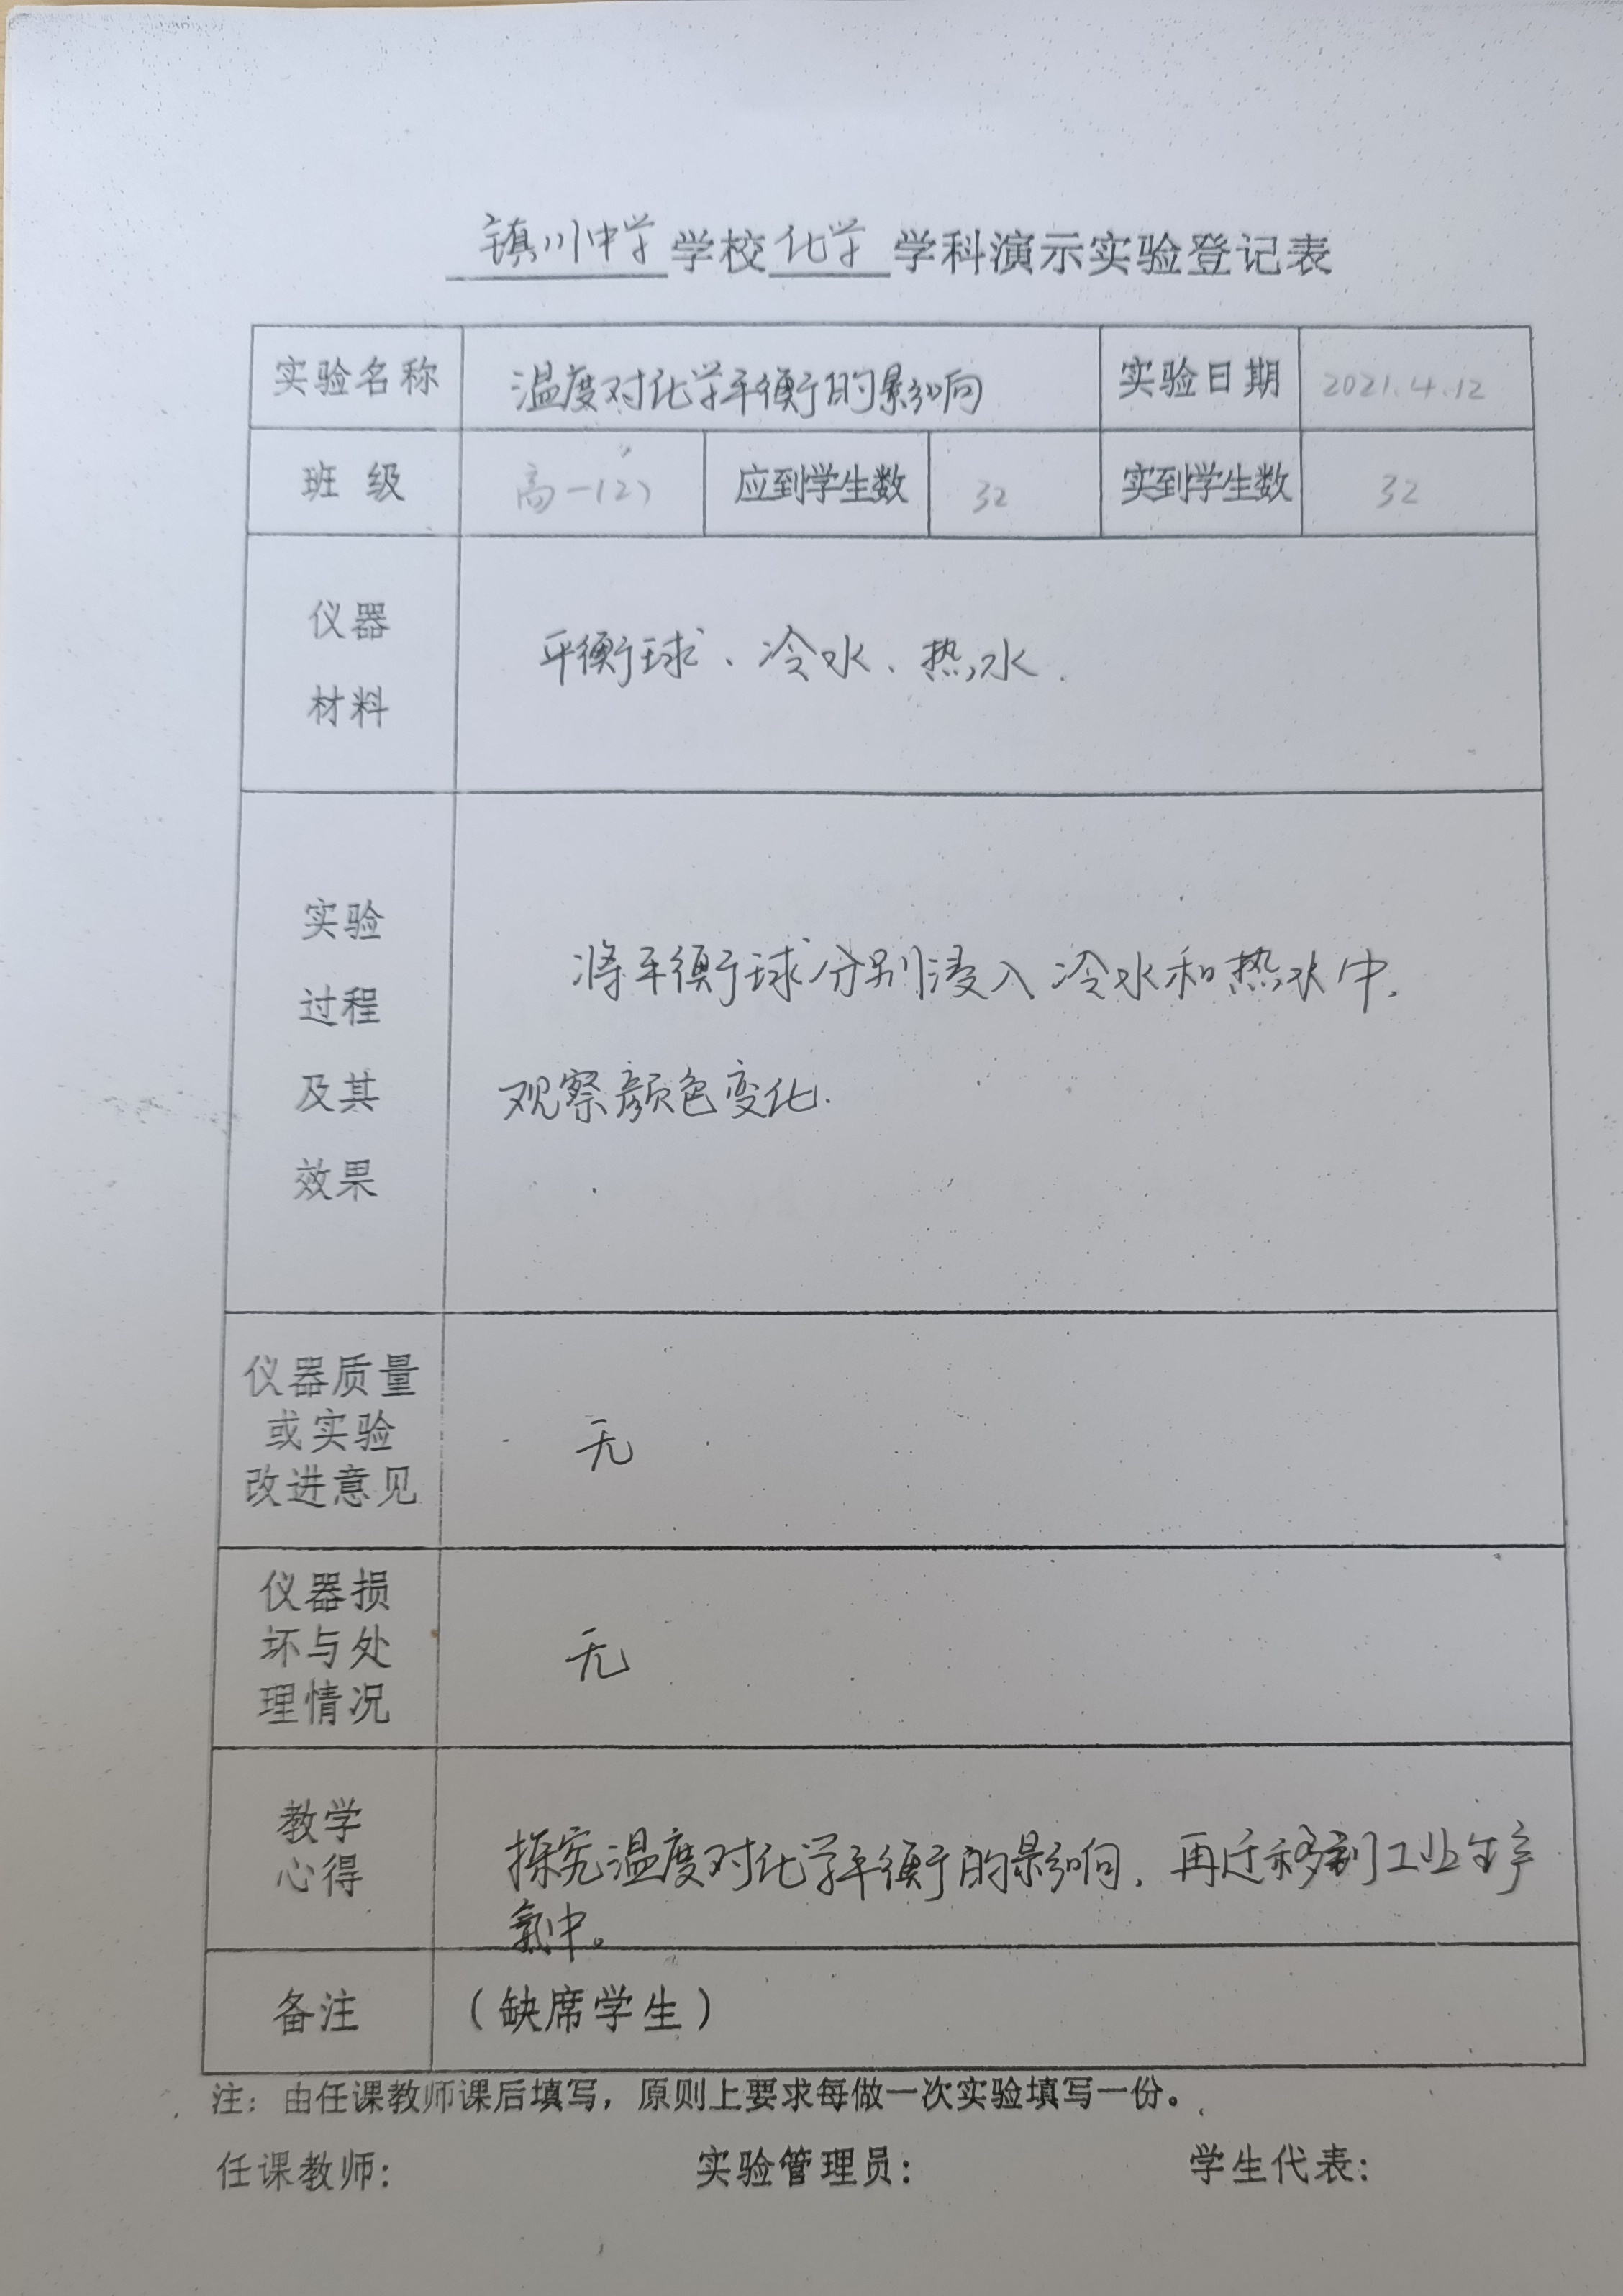 镇川中学学校化学学科演示实验登记表
实验名称 温度对化学平衡的影响 实验日期 2021.4.12
班 级 高一(2) 应到学生数 32 实到学生数 32
仪器
材料
平衡球、冷水、热水.
实验
过程
及其
效果
将平衡球分别浸入冷水和热水中,
观察颜色变化.
仪器质量
或实验
改进意见
无
仪器损
坏与处
理情况
无
教学
心得
探究温度对化学平衡的影响,再迁移到工业生产
氨中。
备注 (缺席学生)
注:由任课教师课后填写,原则上要求每做一次实验填写一份。
任课教师: 实验管理员: 学生代表: